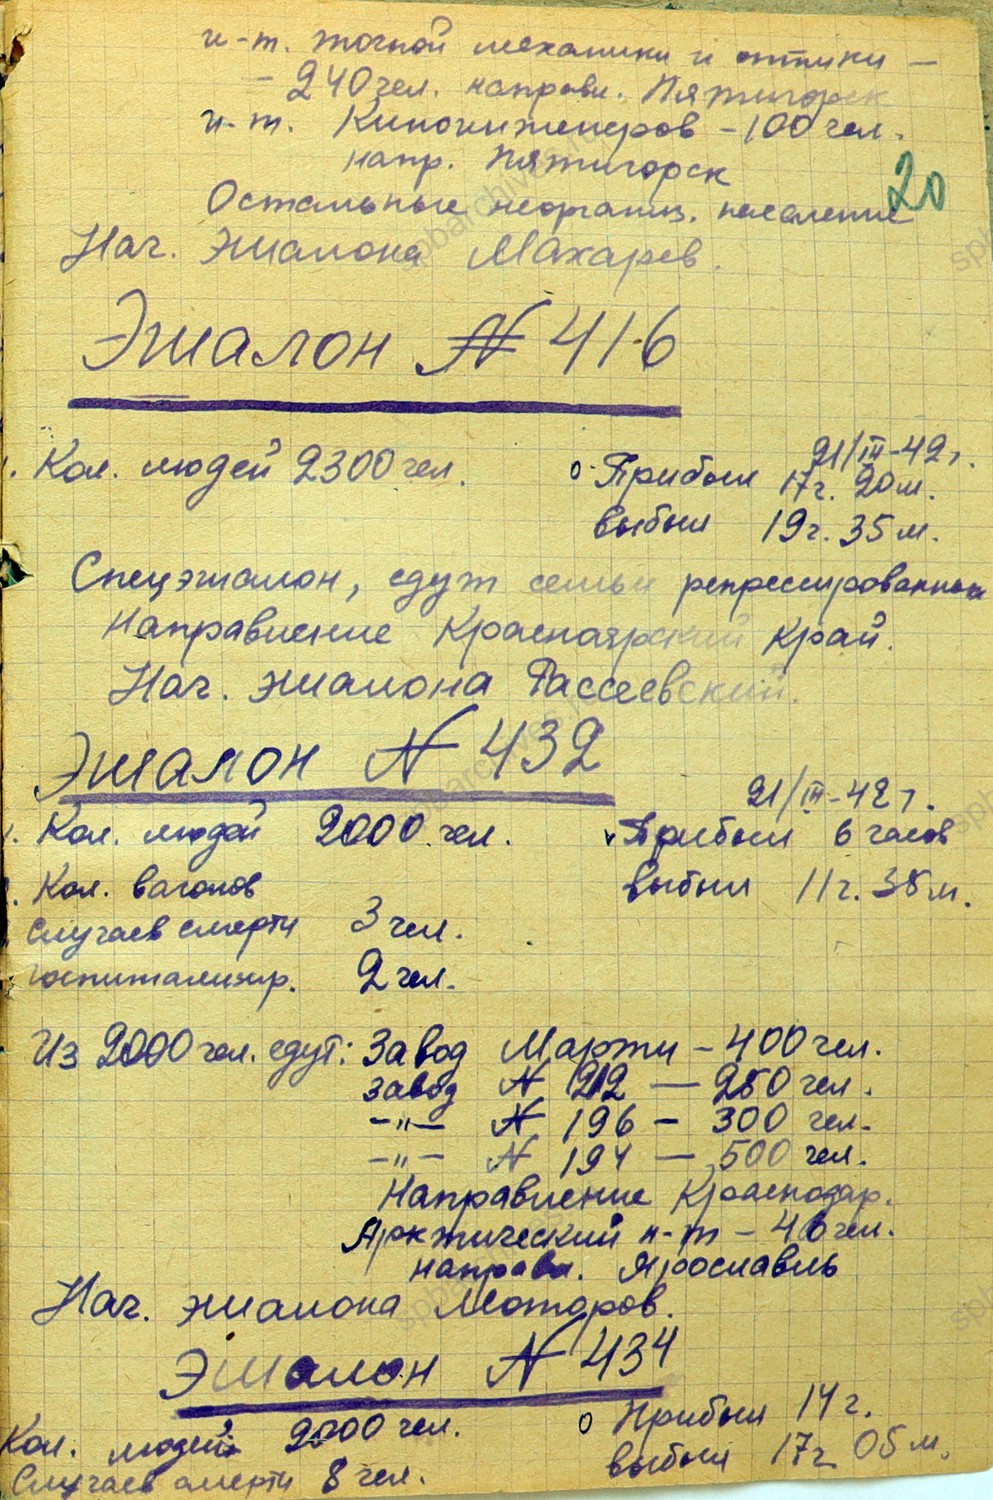 и-т. точной механики и оптики —
— 240 чел. направл. Пятигорск
и-т. Киноинженеров - 100 чел.
напр. Пятигорск
20
Остальные неорганиз. население
Нач. эшалона Махарев.
Эшалон № 416
21/III-42 г.
Кол. людей 2300 чел.
Прибыл 17 г. 20 м.
выбыл 19 г. 35 м.
Спецэшалон, едут семьи репрессированных
Направление Красноярский край.
Нач. эшалона Рассеевский.
Эшалон № 432
21/III-42 г.
Кол. людей 2000 чел.
Прибыл 6 часов
Кол. вагонов
выбыл 11 г. 35 м.
Случаев смерти 3 чел.
госпитализир. 2 чел.
Из 2000 чел. едут: Завод Марти - 400 чел.
завод № 212 — 250 чел.
—"— № 196 — 300 чел.
—"— № 194 — 500 чел.
Направление Краснодар.
Арктический и-т - 46 чел.
направл. Ярославль
Нач. эшалона Моторов.
Эшалон № 434
Кол. людей 2000 чел.
Прибыл 14 г.
выбыл 17 г 05 м.
Случаев смерти 8 чел.
spbarchives.ru